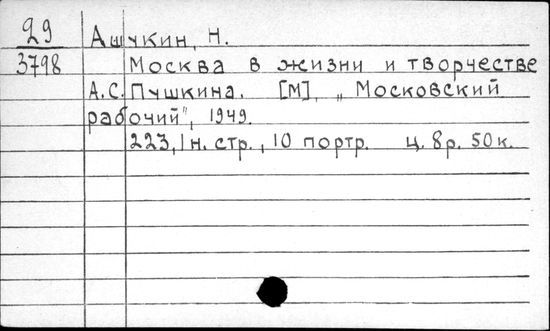 29 Ашукин, Н.
3798 Москва в жизни и творчестве
А.С. Пушкина. [М], „Московский
рабочий", 1949.
223, 1н. стр., 10 портр. ц. 8р. 50к.